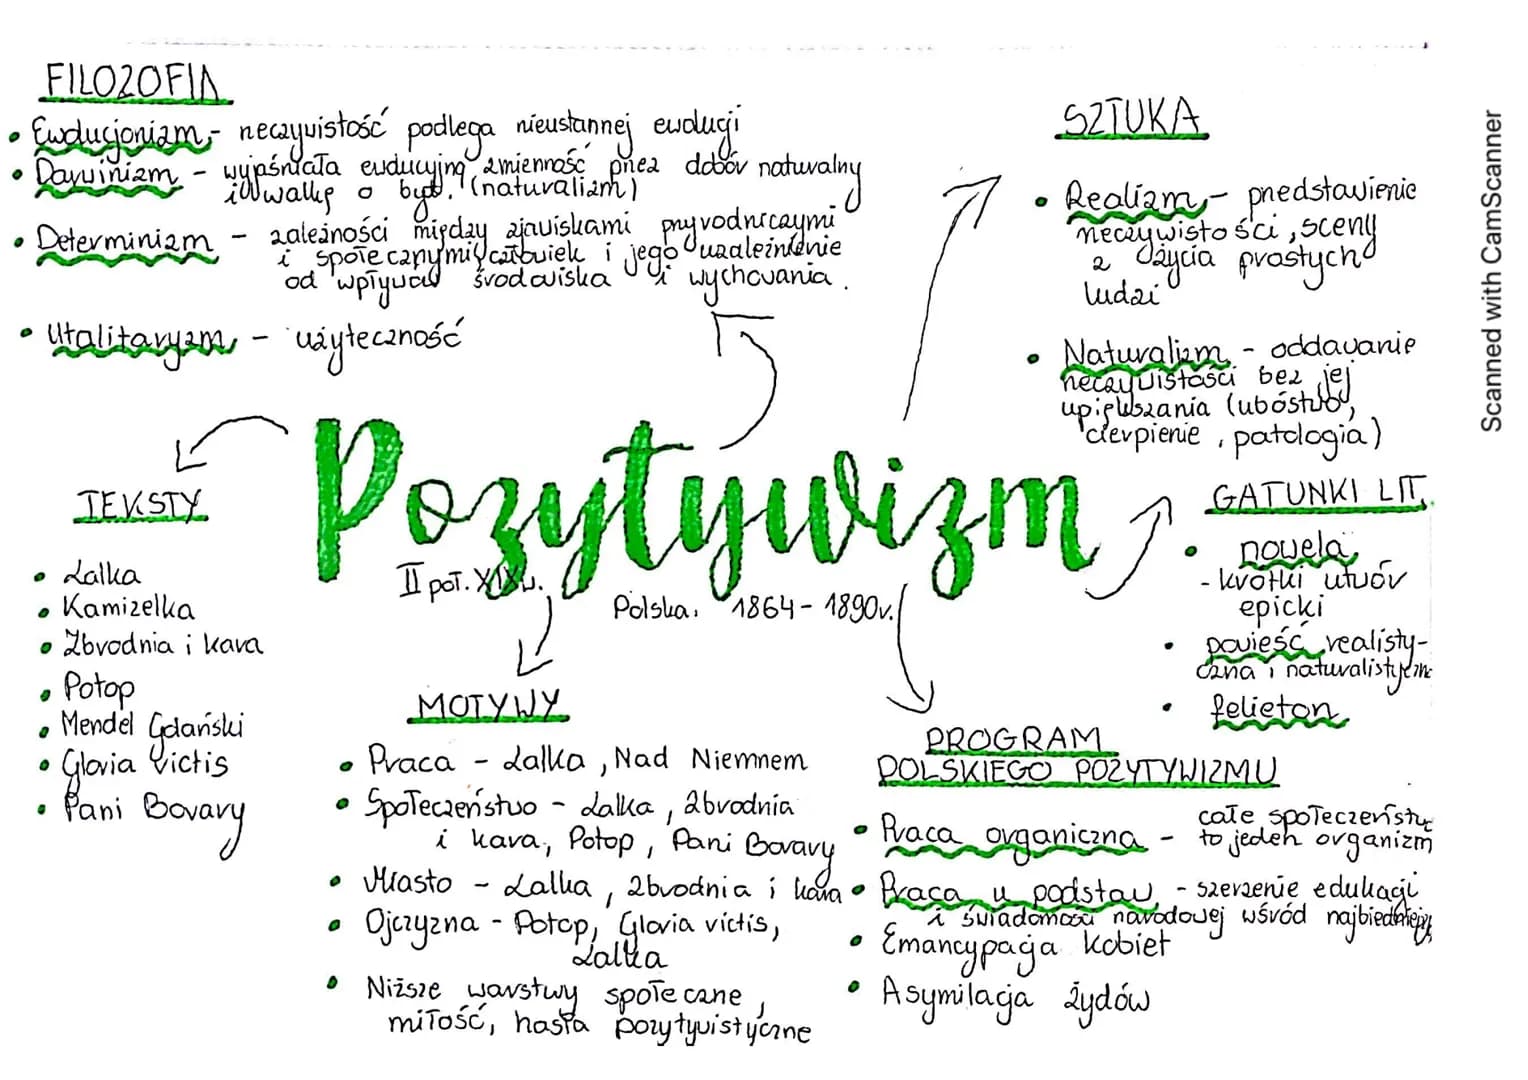 FILOZOFIA
• Ewolucjonizm - rzeczywistość podlega nieustannej ewolucji
• Darwinizm - wyjaśniała ewolucyjną zmienność przez dobór naturalny
i walkę o byt. (naturalizm)
• Determinizm - zależności między zjawiskami przyrodniczymi
i społecznymi, człowiek i jego uzależnienie
od wpływów środowiska i wychowania.
• Utalitaryzm - użyteczność
SZTUKA
• Realizm - przedstawienie
rzeczywistości, sceny
z życia prostych
ludzi
• Naturalizm - oddawanie
rzeczywistości bez jej
upiększania (ubóstwo,
cierpienie, patologia)
TEKSTY
• Lalka
• Kamizelka
• Zbrodnia i kara
• Potop
• Mendel Gdański
• Gloria victis
• Pani Bovary
Pozytywizm
II poł. XIX w.
Polska. 1864 - 1890r.
GATUNKI LIT.
• nowela
- krótki utwór
epicki
• powieść realisty-
czna i naturalistyczna
• felieton
MOTYWY
• Praca - Lalka, Nad Niemnem
• Społeczeństwo - Lalka, Zbrodnia
i kara, Potop, Pani Bovary
• Miasto - Lalka, Zbrodnia i kara
• Ojczyzna - Potop, Gloria victis,
Lalka
• Niższe warstwy społeczne,
miłość, hasła pozytywistyczne
PROGRAM
POLSKIEGO POZYTYWIZMU
• Praca organiczna - całe społeczeństw
to jeden organizm
• Praca u podstaw - szerzenie edukacji
i świadomości narodowej wśród najbiedniejszy
• Emancypacja kobiet
• Asymilacja żydów
Scanned with CamScanner